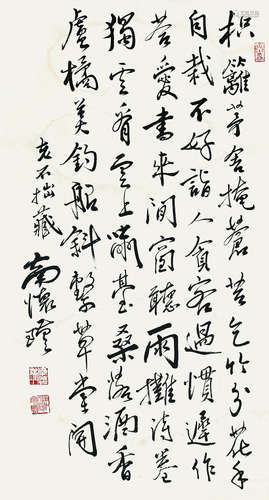 枳籬茅舍掩蒼苔乞竹分花手
自栽不好詣人貪客過慣遲作
答愛書來閒窗聽雨攤詩卷
獨看雲上嘯臺桑落酒香
盧橘美釣船斜繫草堂開
不拙藏
南懷瑾